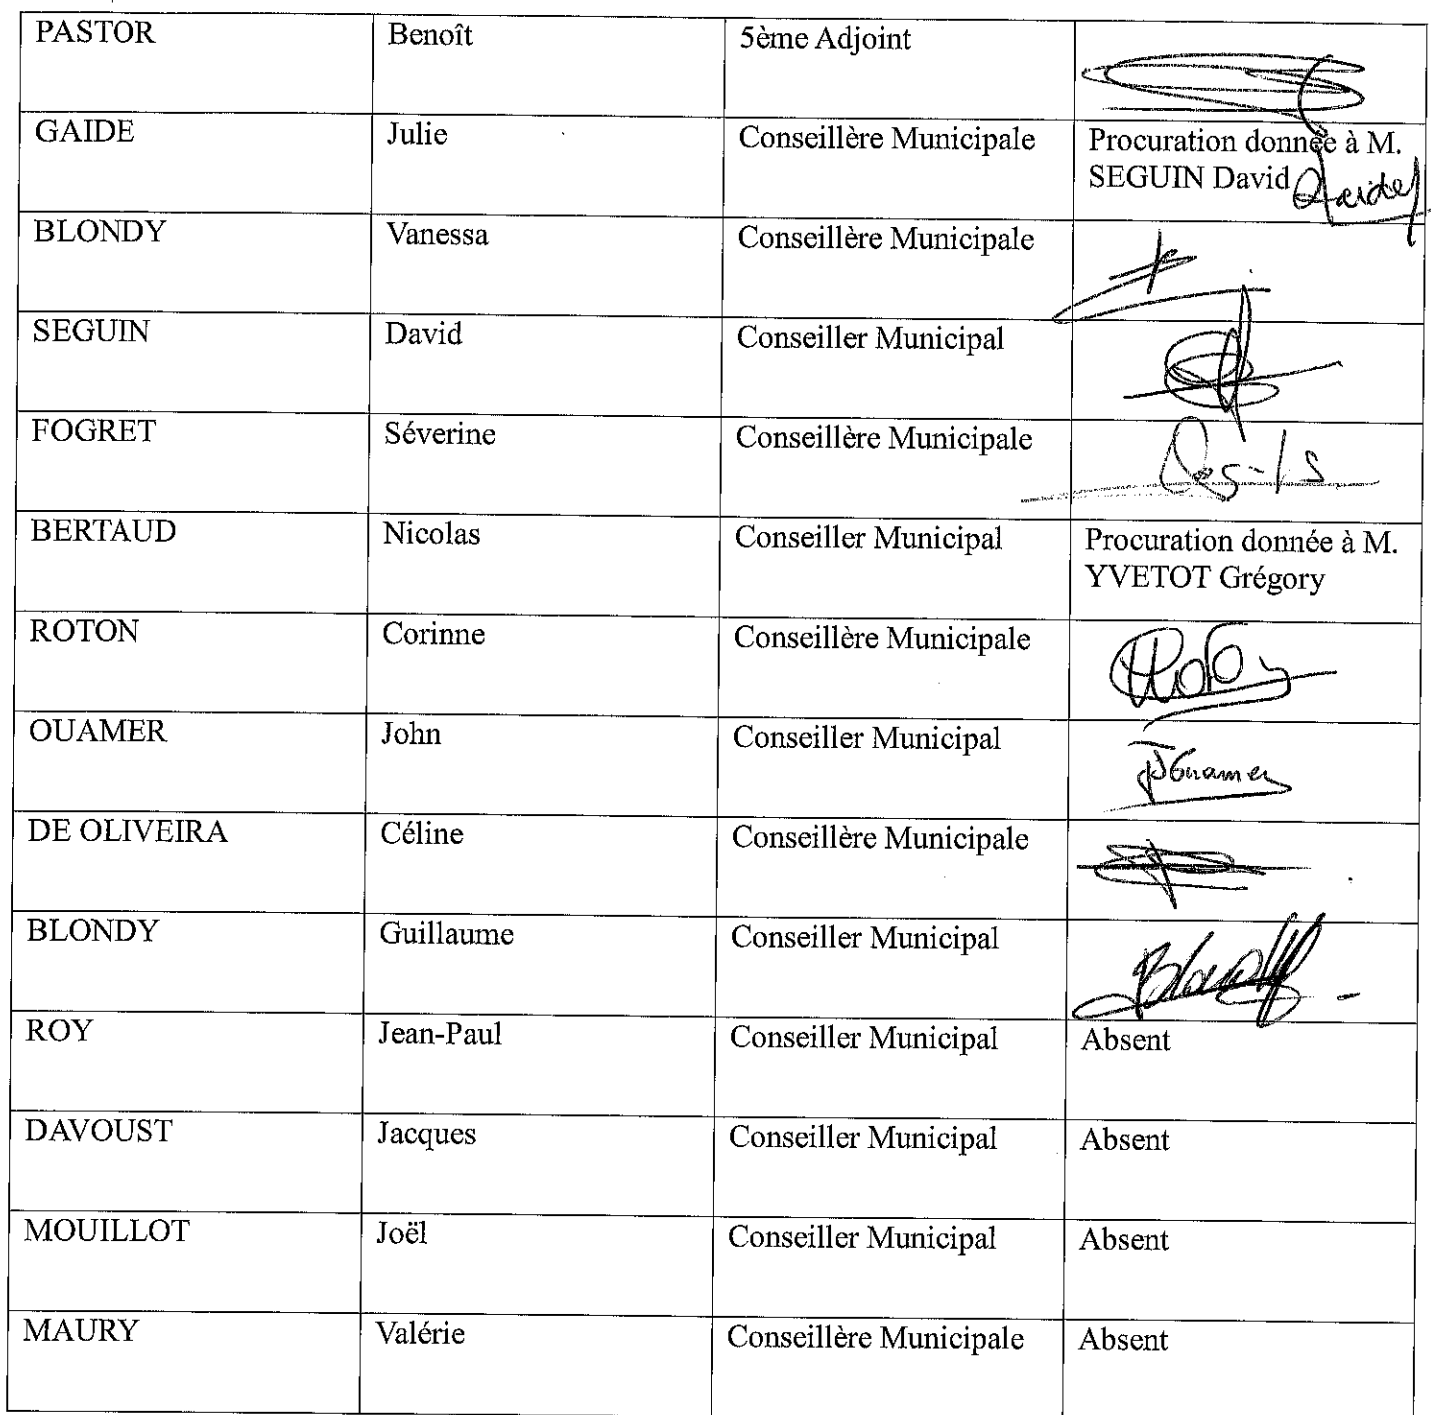 PASTOR Benoît 5ème Adjoint
GAIDE Julie Conseillère Municipale Procuration donnée à M.
SEGUIN David
Gaide
BLONDY Vanessa Conseillère Municipale
SEGUIN David Conseiller Municipal
FOGRET Séverine Conseillère Municipale
BERTAUD Nicolas Conseiller Municipal Procuration donnée à M.
YVETOT Grégory
ROTON Corinne Conseillère Municipale
OUAMER John Conseiller Municipal
JOuamer
DE OLIVEIRA Céline Conseillère Municipale
BLONDY Guillaume Conseiller Municipal
Blondy
ROY Jean-Paul Conseiller Municipal Absent
DAVOUST Jacques Conseiller Municipal Absent
MOUILLOT Joël Conseiller Municipal Absent
MAURY Valérie Conseillère Municipale Absent